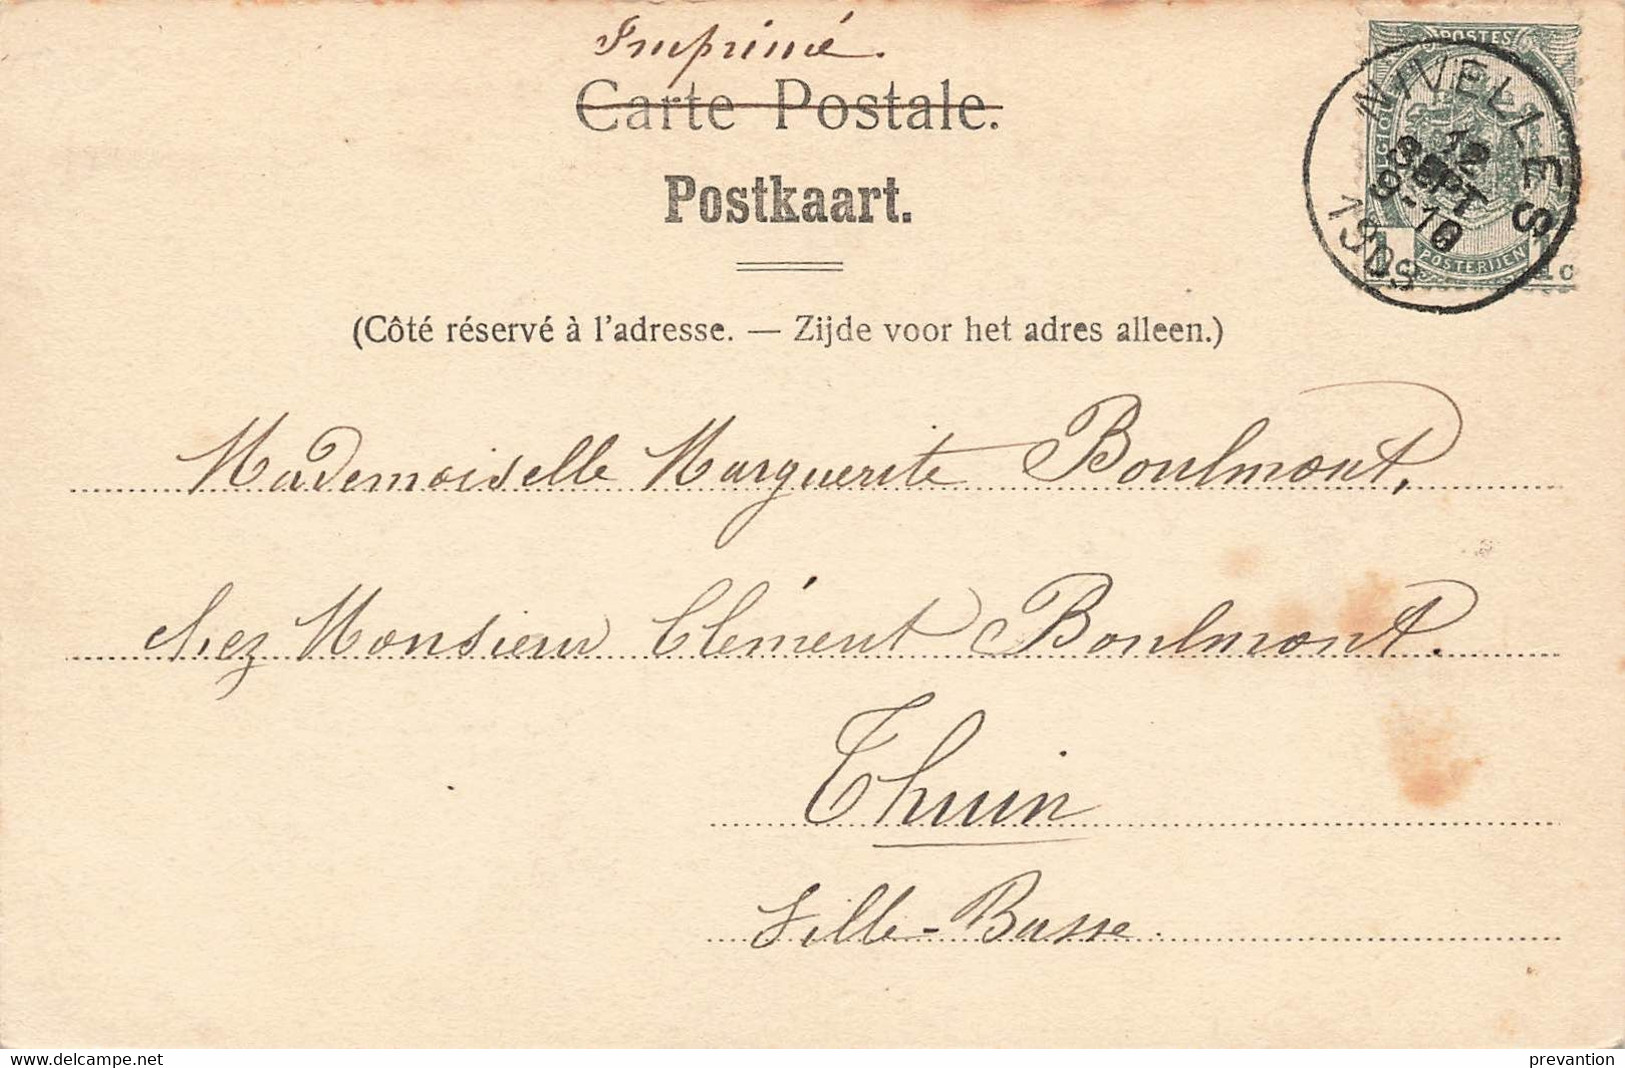 Imprimé.
Carte Postale.
Postkaart.
POSTES
NIVELLES
12
SEPT
9-10
POSTERIJEN
1
1c
(Côté réservé à l'adresse. — Zijde voor het adres alleen.)
Mademoiselle Marguerite Boulmont,
chez Monsieur Clément Boulmont.
Thuin
Ville-Basse.
delcampe.net
prevantion